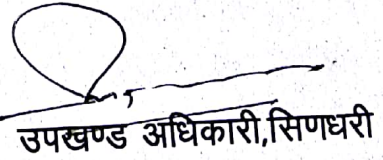 उपखण्ड अधिकारी,सिणधरी